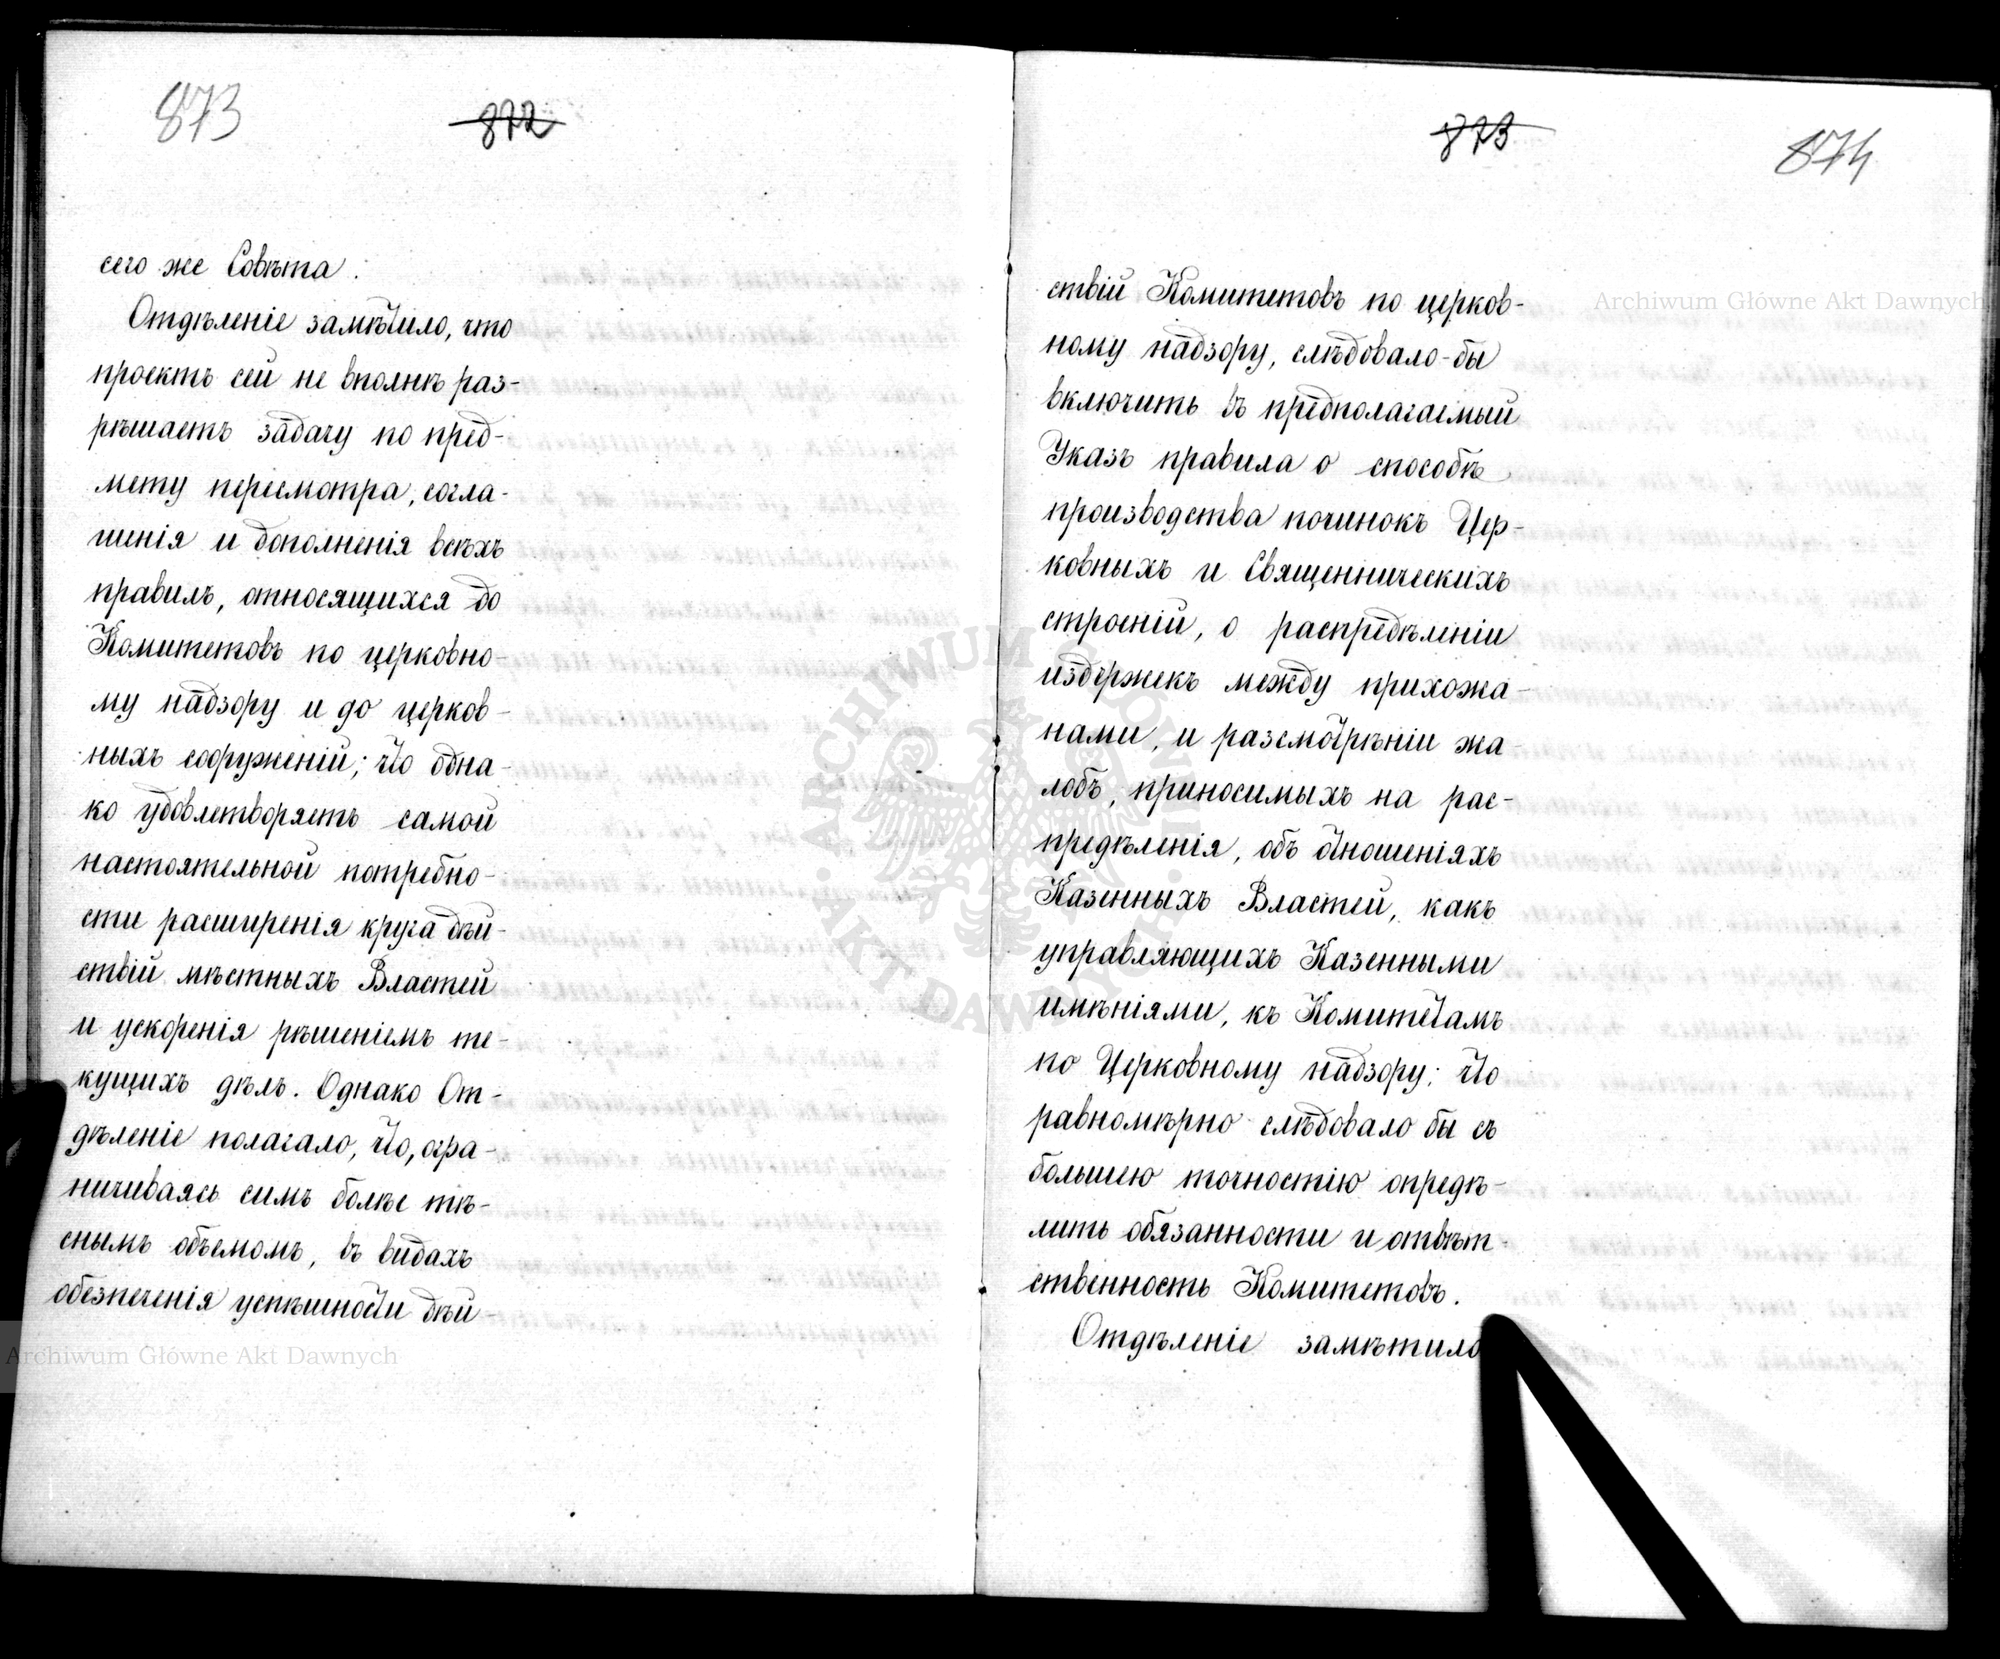 873
872
сего же Совѣта.
Отдѣленіе замѣтило, что
проектъ сей не вполнѣ раз-
рѣшаетъ задачу по пред-
мету пересмотра, согла-
шенія и дополненія всѣхъ
правилъ, относящихся до
Комитетовъ по церковно-
му надзору и до церков-
ныхъ сооруженій; что одна-
ко удовлетворяетъ самой
настоятельной потребно-
сти расширенія круга дѣй-
ствій мѣстныхъ Властей
и ускоренія рѣшеніемъ те-
кущихъ дѣлъ. Однако От-
дѣленіе полагало, что, огра-
ничиваясь симъ болѣе тѣ-
снымъ объемомъ, въ видахъ
обезпеченія успѣшности дѣй-
Archiwum Główne Akt Dawnych
873
874
ствій Комитетовъ по церков-
Archiwum Główne Akt Dawnych
ному надзору, слѣдовало-бы
включить въ предполагаемый
Указъ правила о способѣ
производства починокъ Цер-
ковныхъ и Священническихъ
строеній, о распредѣленіи
издержекъ между прихожа-
нами, и разсмотрѣніи жа
лобъ, приносимыхъ на рас-
предѣленія, объ отношеніяхъ
Казенныхъ Властей, какъ
управляющихъ Казенными
имѣніями, къ Комитетамъ
по Церковному надзору; что
равномѣрно слѣдовало бы съ
большею точностію опредѣ-
лить обязанности и отвѣт-
ственность Комитетовъ.
Отдѣленіе замѣтило
ARCHIWUM GŁÓWNE
AKT DAWNYCH